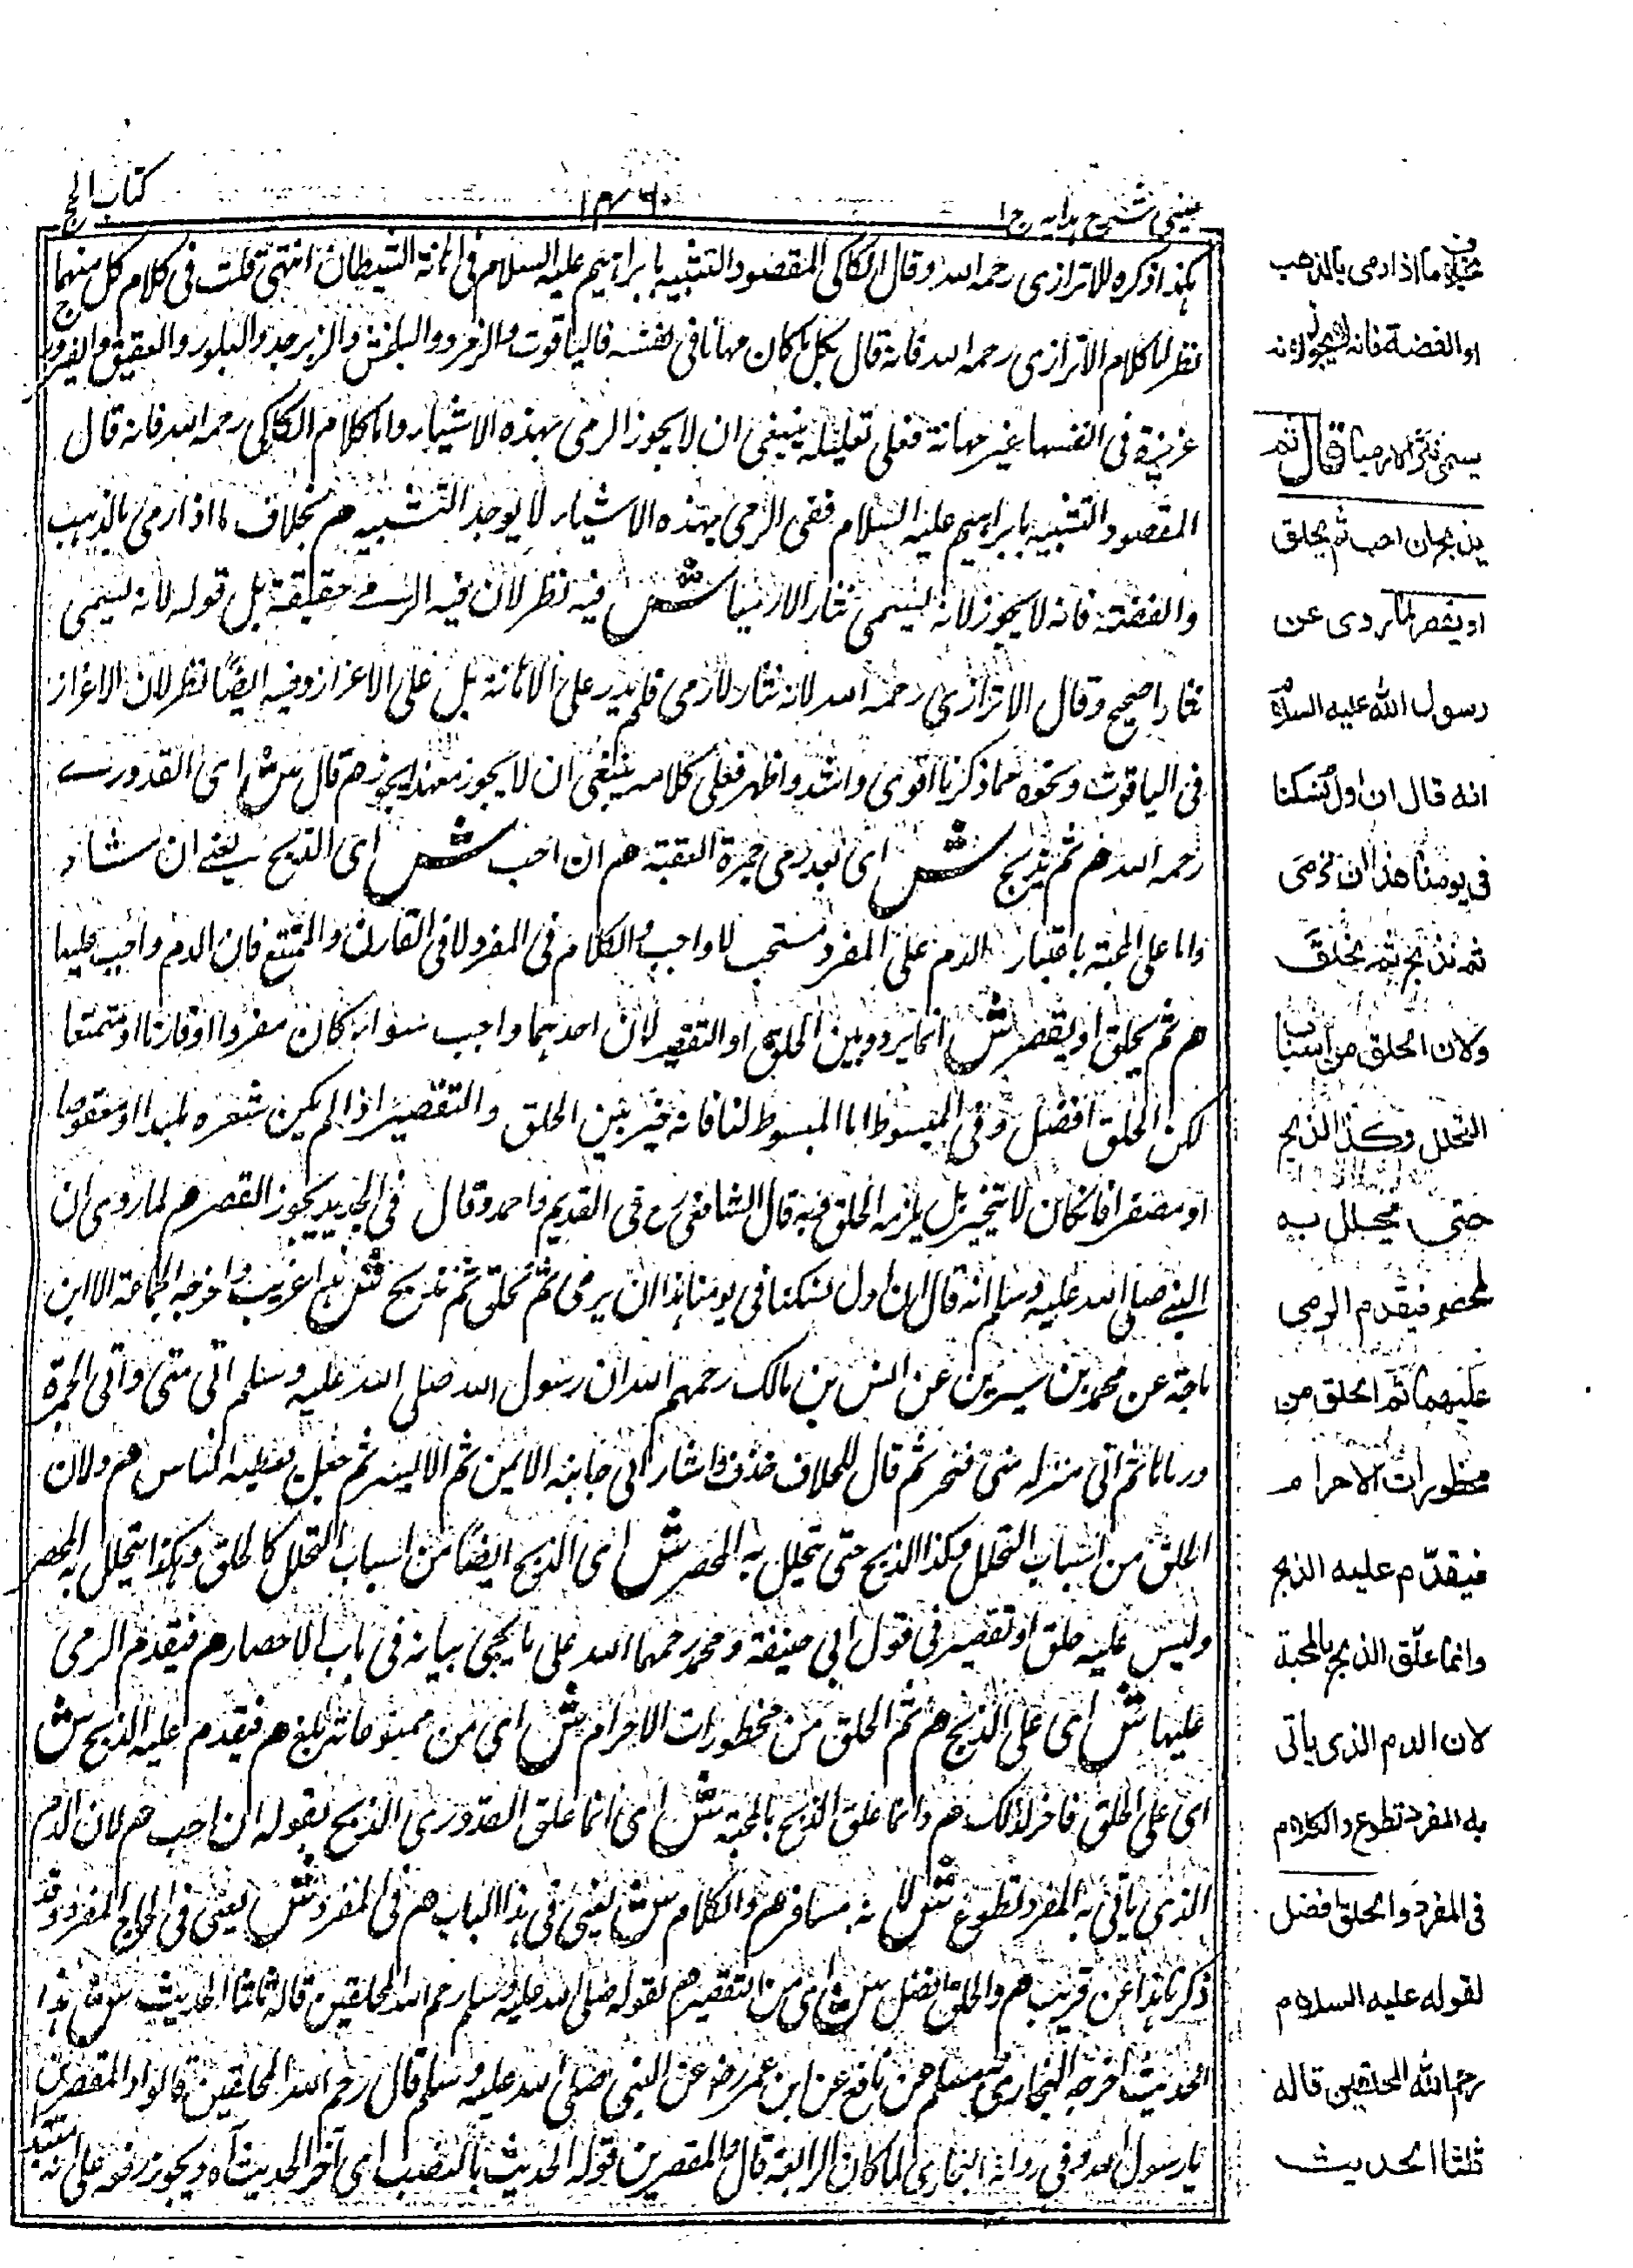 عینی شرح ہدایہ ج ۱
کتاب الحج
ہکذا ذکرہ الاترازی رحمہ اللہ وقال الکاکی المقصود التشبیہ بابراہیم علیہ السلام فی اہانۃ الشیطان انتہی قلت فی کلام کل منہما
نظر اما کلام الاترازی رحمہ اللہ فانہ قال بکل ما کان مہانا فی نفسہ فالیاقوت والزمرد والبلخش والزبرجد والبلور والعقیق والفیروزج
عزیزۃ فی انفسہا غیر مہانۃ فعلی تعلیلہ ینبغی ان لا یجوز الرمی بہذہ الاشیاء واما کلام الکاکی رحمہ اللہ فانہ قال
المقصود التشبیہ بابراہیم علیہ السلام ففی الرمی بہذہ الاشیاء لا یوجد التشبیہ هم بخلاف ما اذا رمی بالذہب
والفضۃ فانہ لا یجوز لانہ یسمی نثارا لا رمیا ش فیہ نظر لان فیہ الرمی حقیقۃ بل قولہ لانہ یسمی
نثارا صحیح وقال الاترازی رحمہ اللہ لانہ نثار لا رمی فلم یدر علی الاہانۃ بل علی الاعزاز وفیہ ایضًا نظر لان الاعزاز
فی الیاقوت ونحوہ مما ذکرنا اقوی واشد واظہر فعلی کلامہ ینبغی ان لا یجوز معہذا یجوز هم قال ش ای القدوری
رحمہ اللہ هم ثم یذبح ش ای بعد رمی جمرۃ العقبۃ هم ان احب ش ای الذبح یعنی ان شاء
وانما علی المحبۃ باعتبار الدم علی المفرد مستحب لا واجب والکلام فی المفرد لا فی القارن والمتمتع فان الدم واجب علیہما
هم ثم یحلق او یقصر ش انما یردد بین الحلق او التقصیر لان احدہما واجب سواء کان مفردا او قارنا او متمتعا
لکن الحلق افضل وفی المبسوط اما المبسوط لنا فانہ خیر بین الحلق والتقصیر اذا لم یکن شعرہ ملبدا او معقوصا
او مضفرا فان کان لا یتخیر بل یلزمہ الحلق فبہ قال الشافعی رح فی القدیم واحمد وقال فی الجدید یجوز القصر هم لما روی ان
النبی صلی اللہ علیہ وسلم انہ قال ان اول نسکنا فی یومنا ہذا ان یرمی ثم نحلق ثم نذبح ش ہذا غریب واخرجہ الجماعۃ الا ابن
ماجۃ عن محمد بن سیرین عن انس بن مالک رحمہم اللہ ان رسول اللہ صلی اللہ علیہ وسلم اتی منی واتی الجمرۃ
ورماہا ثم اتی منزلہ منی فنحر ثم قال للحلاق خذ واشار الی جانبہ الایمن ثم الایسر ثم جعل یعطیہ الناس هم ولان
الحلق من اسباب التحلل وکذا الذبح حتی یتحلل بہ المحصر ش ای الذبح ایضًا من اسباب التحلل کالحلق وکذا یتحلل بہ المحصر
ولیس علیہ حلق او تقصیر فی قول ابی حنیفۃ ومحمد رحمہما اللہ علی ما یجئ بیانہ فی باب الاحصار هم فیقدم الرمی
علیہا ش ای علی الذبح هم ثم الحلق من محظورات الاحرام ش ای من ممنوعاتہ هم فیقدم علیہ الذبح ش
ای علی الحلق فاخر لذلک هم وانما علق الذبح بالمحبۃ ش ای انما علق القدوری الذبح بقولہ ان احب هم لان الدم
الذی یاتی بہ المفرد تطوع ش لانہ مسافر هم والکلام ش یعنی فی ہذا الباب هم فی المفرد ش یعنی فی الحاج المفرد وقد
ذکرنا ہذا عن قریب هم والحلق افضل ش ای من التقصیر هم لقولہ صلی اللہ علیہ وسلم رحم اللہ المحلقین قالہ ثلاثا الحدیث ش ہذا
الحدیث اخرجہ البخاری ومسلم عن نافع عن ابن عمر رض عن النبی صلی اللہ علیہ وسلم قال رحم اللہ المحلقین قالوا والمقصرین
یا رسول اللہ وفی روایۃ البخاری لما کان الرابعۃ قال والمقصرین قولہ الحدیث بالنصب ای آخر الحدیث آہ ویجوز رفعہ علی انہ مبتدأ
بخلاف ما اذا رمی بالذهب
او الفضة فانه لایجوز لانه
یسمی نثرا لا رمیا قال ثم
یذبح ان احب ثم یحلق
او یقصر لما روی عن
رسول الله علیه السلام
انه قال ان اول نسکنا
فی یومنا هذا ان نرمی
ثم نذبح ثم نحلق
ولان الحلق من اسباب
التحلل وکذا الذبح
حتی یتحلل به
المحصر فیقدم الرمی
علیهما ثم الحلق من
محظورات الاحرام
فیقدّم علیه الذبح
وانما علّق الذبح بالمحبة
لان الدم الذی یأتی
به المفرد تطوع والکلام
فی المفرد والحلق افضل
لقوله علیه السلام
رحم الله المحلقین قاله
ثلثا الحدیث